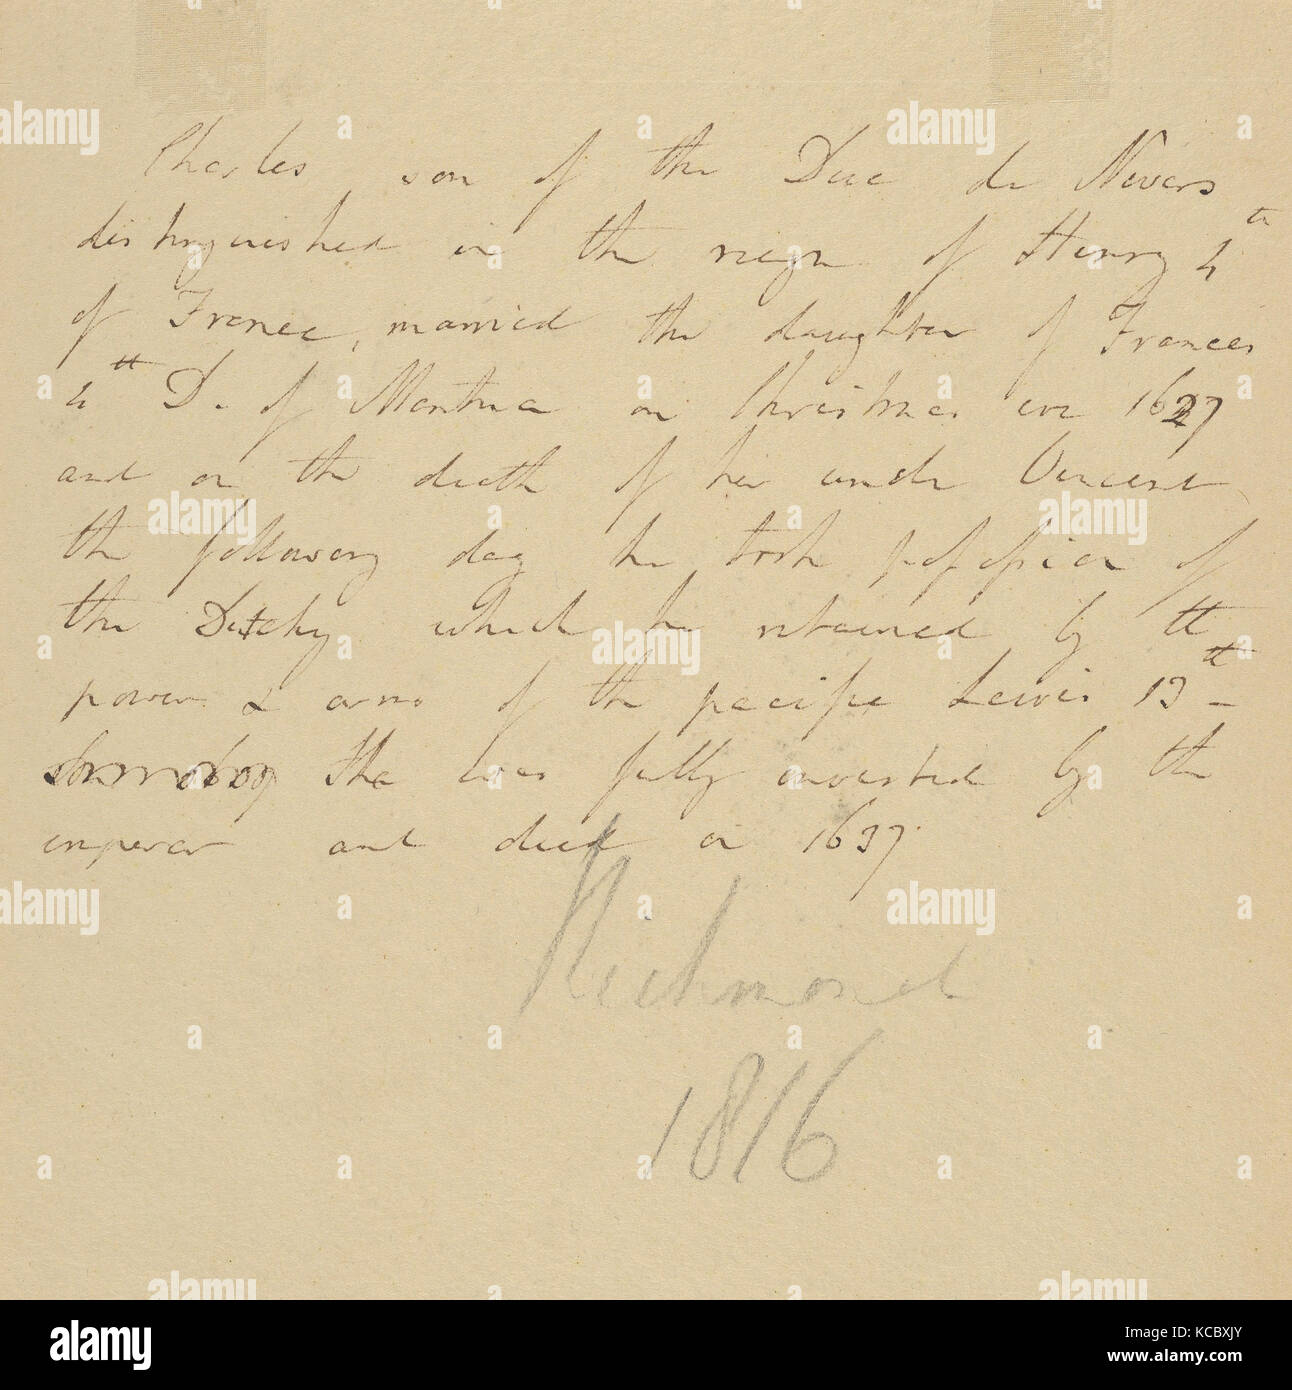 Charles son of the Duc de Nevers
distinguished in the reign of Henry 4th
of France, married the daughter of Frances
4th D. of Mantua on Christmas eve 1627
and on the death of her uncle Vincent
the following day he took possession of
the Dutchy which he retained by the
power & arms of the pacific Lewis 13th -
the was fully invested by the
emperor and died in 1637.
Richmond
1816
alamy
Image ID: KCBXJY
www.alamy.com